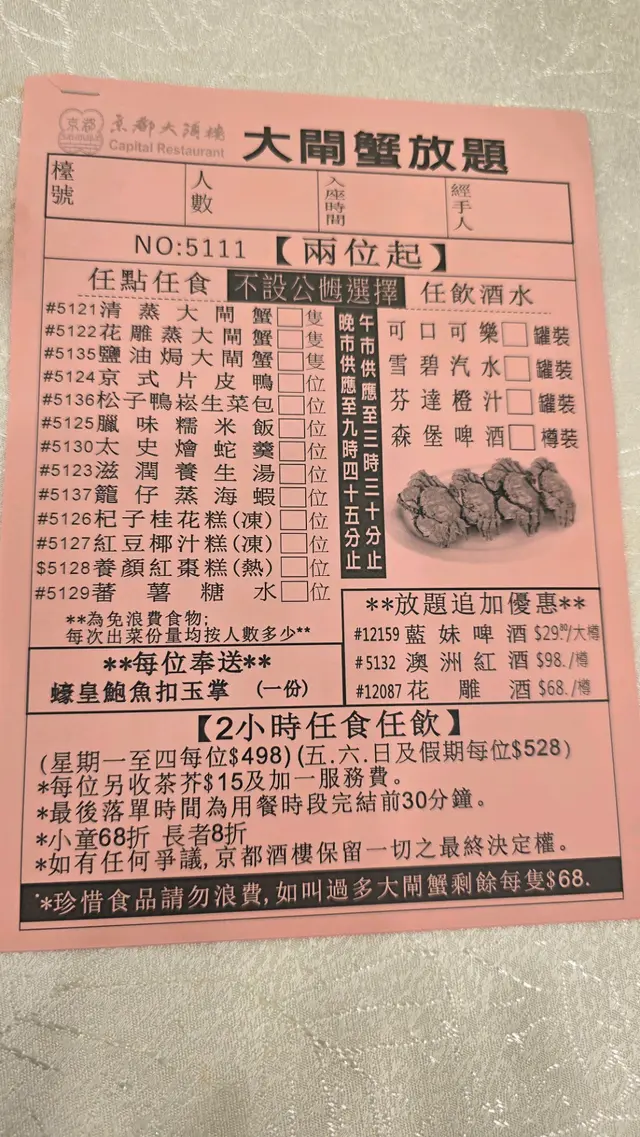 京都
京都大酒樓
Capital Restaurant
大閘蟹放題
檯號 人數 入座時間 經手人
NO:5111 【兩位起】
任點任食 不設公乸選擇 任飲酒水
#5121清蒸大閘蟹□隻
#5122花雕蒸大閘蟹□隻
#5135鹽油焗大閘蟹□隻
#5124京式片皮鴨□位
#5136松子鴨崧生菜包□位
#5125臘味糯米飯□位
#5130太史燴蛇羹□位
#5123滋潤養生湯□位
#5137籠仔蒸海蝦□位
#5126杞子桂花糕(凍)□位
#5127紅豆椰汁糕(凍)□位
$5128養顏紅棗糕(熱)□位
#5129蕃薯糖水□位
**為免浪費食物;
每次出菜份量均按人數多少**
午市供應至三時三十分止
晚市供應至九時四十五分止
可口可樂□罐裝
雪碧汽水□罐裝
芬達橙汁□罐裝
森堡啤酒□樽裝
**放題追加優惠**
#12159 藍妹啤酒 $29.⁸⁰/大樽
#5132 澳洲紅酒 $98./樽
#12087 花雕酒 $68./樽
**每位奉送**
蠔皇鮑魚扣玉掌 (一份)
【2小時任食任飲】
(星期一至四每位$498)(五.六.日及假期每位$528)
*每位另收茶芥$15及加一服務費。
*最後落單時間為用餐時段完結前30分鐘。
*小童68折 長者8折
*如有任何爭議,京都酒樓保留一切之最終決定權。
*珍惜食品請勿浪費,如叫過多大閘蟹剩餘每隻$68.